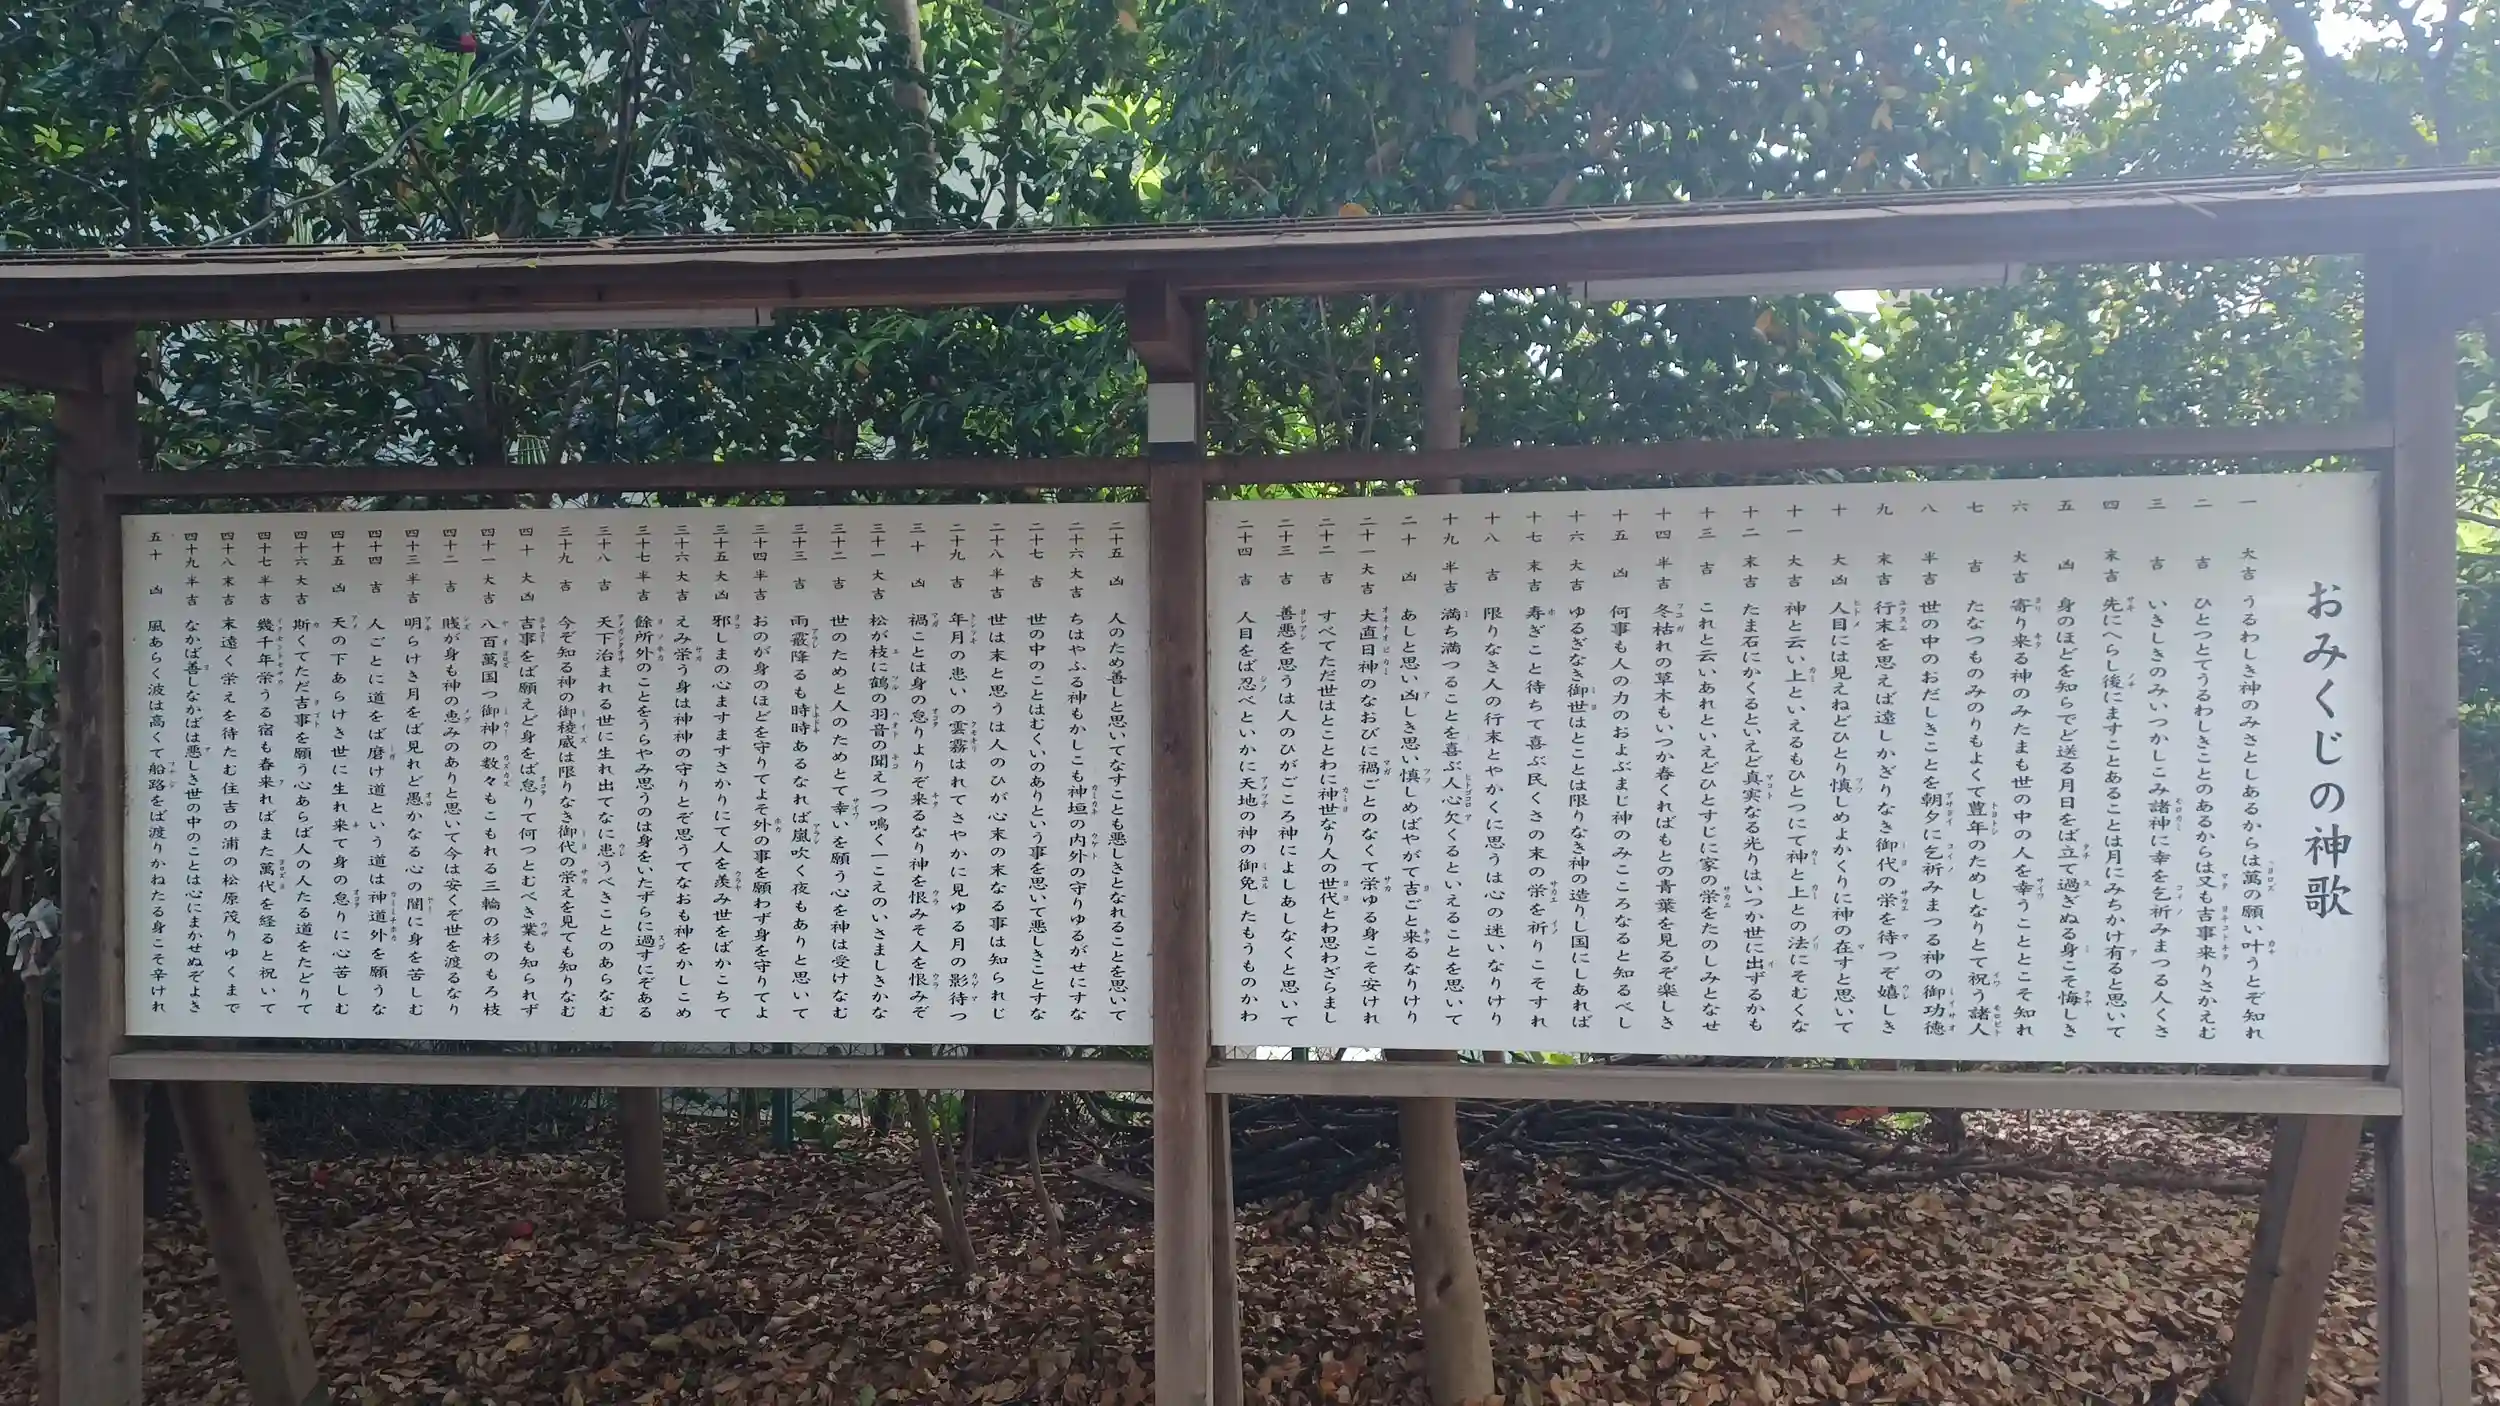 おみくじの神歌
一 大吉 うるわしき神のみさとしあるからは萬の願い叶うとぞ知れ
二 吉 ひとつとてうるわしきことのあるからは又も吉事来りさかえむ
三 吉 いきしきのみいつかしこみ諸神に幸を乞祈みまつる人くさ
四 末吉 先にへらし後にますことあることは月にみちかけ有ると思いて
五 凶 身のほどを知らでど送る月日をば立て過ぎぬる身こそ悔しき
六 大吉 寄り来る神のみたまも世の中の人を幸うこととこそ知れ
七 吉 たなつものみのりもよくて豊年のためしなりとて祝う諸人
八 半吉 世の中のおだしきことを朝夕に乞祈みまつる神の御功徳
九 末吉 行末を思えば遠しかぎりなき御代の栄を待つぞ嬉しき
十 大凶 人目には見えねどひとり慎しめよかくりに神の在すと思いて
十一 大吉 神と云い上といえるもひとつにて神と上との法にそむくな
十二 末吉 たま石にかくるといえど真実なる光りはいつか世に出ずるかも
十三 吉 これと云いあれといえどひとすじに家の栄をたのしみとなせ
十四 半吉 冬枯れの草木もいつか春くればもとの青葉を見るぞ楽しき
十五 凶 何事も人の力のおよぶまじ神のみこころなると知るべし
十六 大吉 ゆるぎなき御世はとことは限りなき神の造りし国にしあれば
十七 末吉 寿ぎこと待ちて喜ぶ民くさの末の栄を祈りこそすれ
十八 吉 限りなき人の行末とやかくに思うは心の迷いなりけり
十九 半吉 満ち満つることを喜ぶ人心欠くるといえることを思いて
二十 凶 あしと思い凶しき思い慎しめばやがて吉ごと来るなりけり
二十一 大吉 大直日神のなおびに禍ごとのなくて栄ゆる身こそ安けれ
二十二 吉 すべてただ世はとことわに神世なり人の世代とわ思わざらまし
二十三 吉 善悪を思うは人のひがごころ神によしあしなくと思いて
二十四 吉 人目をば忍べといかに天地の神の御免したもうものかわ
二十五 凶 人のため善しと思いてなすことも悪しきとなれることを思いて
二十六 大吉 ちはやふる神もかしこも神垣の内外の守りゆるがせにすな
二十七 吉 世の中のことはむくいのありという事を思いて悪しきことすな
二十八 半吉 世は末と思うは人のひが心末の末なる事は知られじ
二十九 吉 年月の患いの雲霧はれてさやかに見ゆる月の影待つ
三十 凶 禍ことは身の怠りよりぞ来るなり神を恨みそ人を恨みぞ
三十一 大吉 松が枝に鶴の羽音の聞えつつ鳴く一こえのいさましきかな
三十二 吉 世のためと人のためとて幸いを願う心を神は受けなむ
三十三 吉 雨霰降るも時時あるなれば嵐吹く夜もありと思いて
三十四 半吉 おのが身のほどを守りてよそ外の事を願わず身を守りてよ
三十五 大凶 邪しまの心ますますさかりにて人を羨み世をばかこちて
三十六 大吉 えみ栄う身は神神の守りとぞ思うてなおも神をかしこめ
三十七 半吉 餘所外のことをうらやみ思うのは身をいたずらに過すにぞある
三十八 吉 天下治まれる世に生れ出てなに患うべきことのあらなむ
三十九 吉 今ぞ知る神の御稜威は限りなき御代の栄えを見ても知りなむ
四十 大凶 吉事をば願えど身をば怠りて何つとむべき業も知られず
四十一 大吉 八百萬国つ御神の数々もこもれる三輪の杉のもろ枝
四十二 吉 賎が身も神の恵みのありと思いて今は安くぞ世を渡るなり
四十三 半吉 明らけき月をば見れど愚かなる心の闇に身を苦しむ
四十四 吉 人ごとに道をば磨け道という道は神道外を願うな
四十五 凶 天の下あらけき世に生れ来て身の怠りに心苦しむ
四十六 大吉 斯くてただ吉事を願う心あらば人の人たる道をたどりて
四十七 半吉 幾千年栄うる宿も春来ればまた萬代を経ると祝いて
四十八 末吉 末遠く栄えを待たむ住吉の浦の松原茂りゆくまで
四十九 半吉 なかば善しなかばは悪しき世の中のことは心にまかせぬぞよき
五十 凶 風あらく波は高くて船路をば渡りかねたる身こそ辛けれ